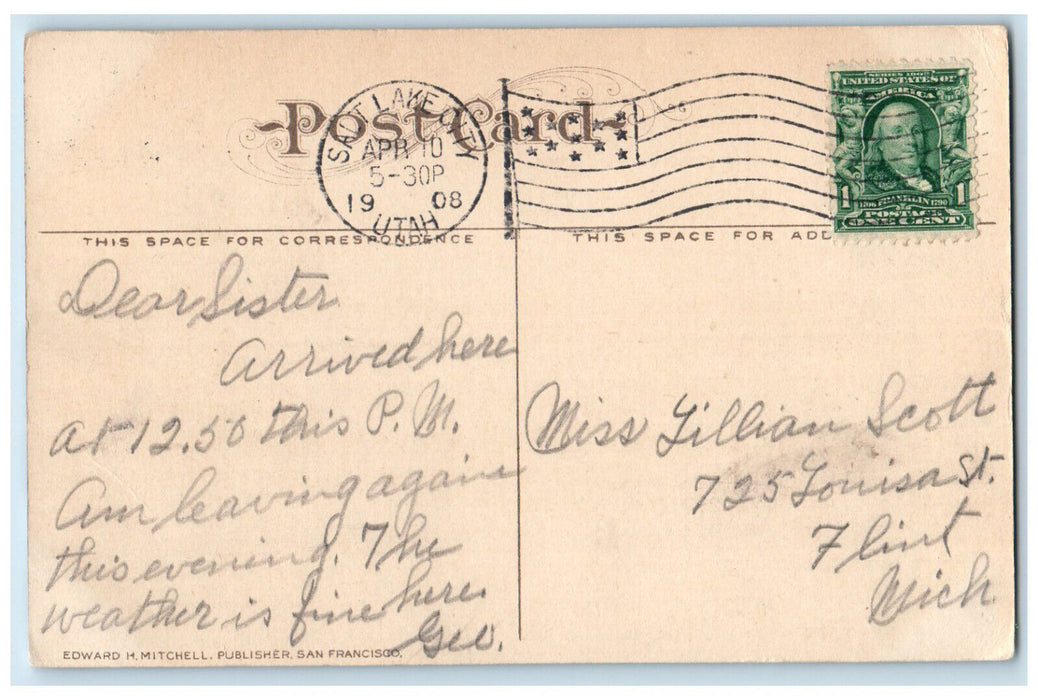 Post Card
SALT LAKE CITY
APR 10
5-30P
19 08
UTAH
SERIES 1902
UNITED STATES OF
AMERICA
1 1
1706 FRANKLIN 1790
POSTAGE
ONE CENT
THIS SPACE FOR CORRESPONDENCE
THIS SPACE FOR ADD
Dear Sister
Arrived here
at 12.50 this P.M.
Am leaving again
this evening. The
weather is fine here.
Geo.
Miss Lillian Scott
725 Louisa St.
Flint
Mich
EDWARD H. MITCHELL, PUBLISHER, SAN FRANCISCO.